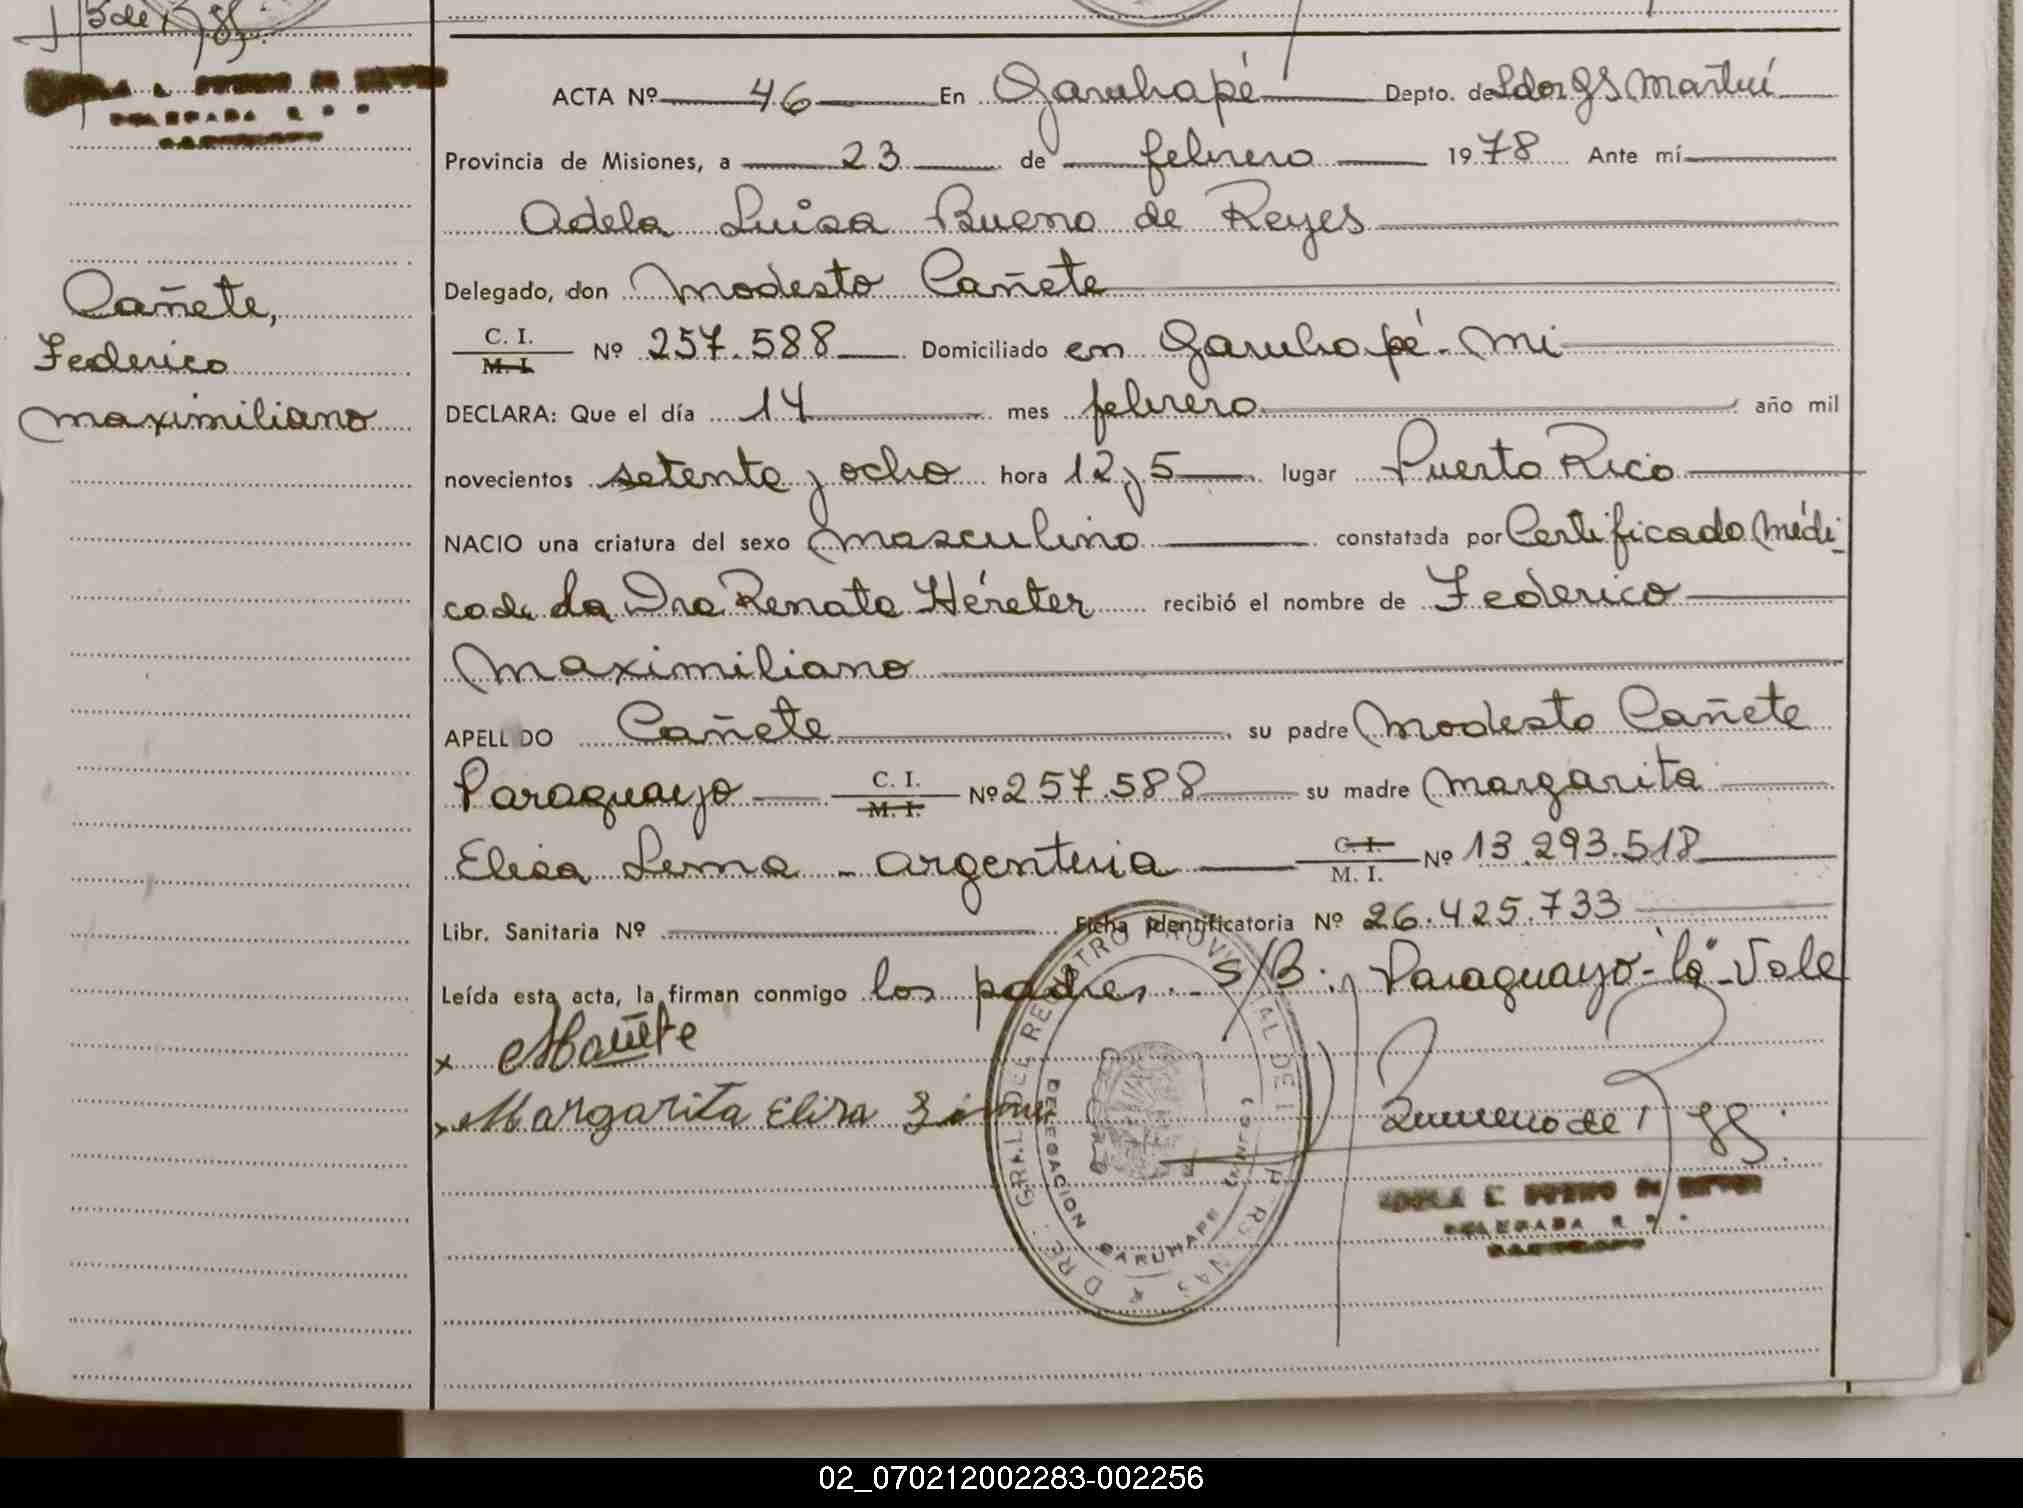 ACTA Nº 46 En Garuhapé Depto. de Ldor GS Martín
Provincia de Misiones, a 23 de febrero 1978 Ante mí
Adela Luisa Bueno de Reyes
Delegado, don Modesto Cañete
C. I. M. I. Nº 257.588 Domiciliado en Garuhapé - Mi
DECLARA: Que el día 14 mes febrero año mil
novecientos setenta y ocho hora 12 y 5 lugar Puerto Rico
NACIO una criatura del sexo masculino constatada por Certificado Médi-
co de la Dra Renata Héreter recibió el nombre de Federico
Maximiliano
APELLIDO Cañete su padre Modesto Cañete
Paraguayo C. I. M. I. Nº 257.588 su madre Margarita
Elisa Lema - argentina C. I. M. I. Nº 13.293.518
Libr. Sanitaria Nº Ficha identificatoria Nº 26.425.733
Leída esta acta, la firman conmigo los padres. - S/B: Paraguayo - "la" - Vale
x MCañete
x Margarita Elisa
Bueno de
DELEGADA
Cañete,
Federico
Maximiliano
DELEGADA
DELEGACION GARUHAPE
02_070212002283-002256